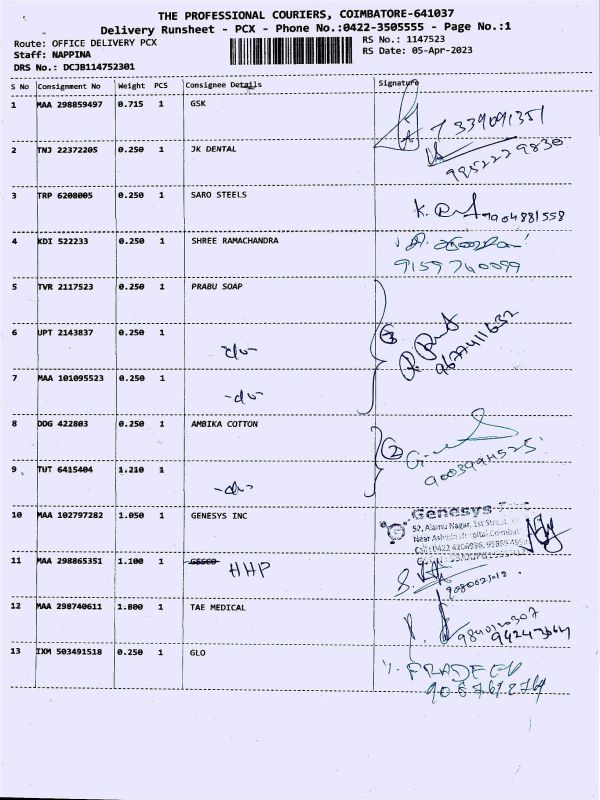 THE PROFESSIONAL COURIERS, COIMBATORE-641037
Delivery Runsheet - PCX - Phone No.:0422-3505555 - Page No.:1
Route: OFFICE DELIVERY PCX
RS No.: 1147523
Staff: NAPPINA
RS Date: 05-Apr-2023
DRS No.: DCJB114752301
S No Consignment No Weight PCS Consignee Details Signature
1 MAA 298859497 0.715 1 GSK
2 TNJ 22372205 0.250 1 JK DENTAL
9952229830
3 TRP 6208005 0.250 1 SARO STEELS
9904881558
4 KDI 522233 0.250 1 SHREE RAMACHANDRA
9159740099
5 TVR 2117523 0.250 1 PRABU SOAP
6 UPT 2143837 0.250 1 -do-
3
9677411632
7 MAA 101095523 0.250 1 -do-
8 DDG 422803 0.250 1 AMBIKA COTTON
2
9 TUT 6415404 1.210 1 -do-
10 MAA 102797282 1.050 1 GENESYS INC
Genesys
52, Alamu Nagar, 1st Street,
11 MAA 298865351 1.100 1 HHP
12 MAA 298740611 1.800 1 TAE MEDICAL
13 IXM 503491518 0.250 1 GLO
PRADEEP